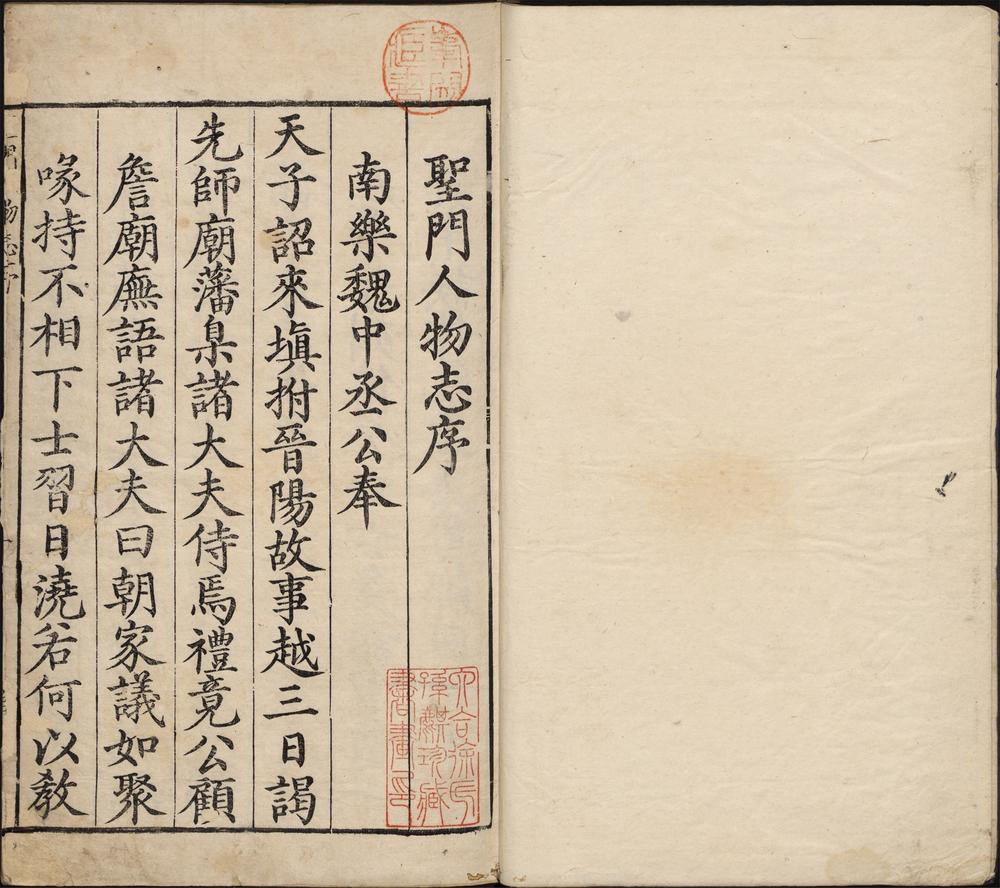 聖門人物志序
南樂魏中丞公奉
天子詔來填拊晉陽故事越三日謁
先師廟藩臬諸大夫侍焉禮竟公顧
詹廟廡語諸大夫曰朝家議如聚
喙持不相下士習日澆若何以敎